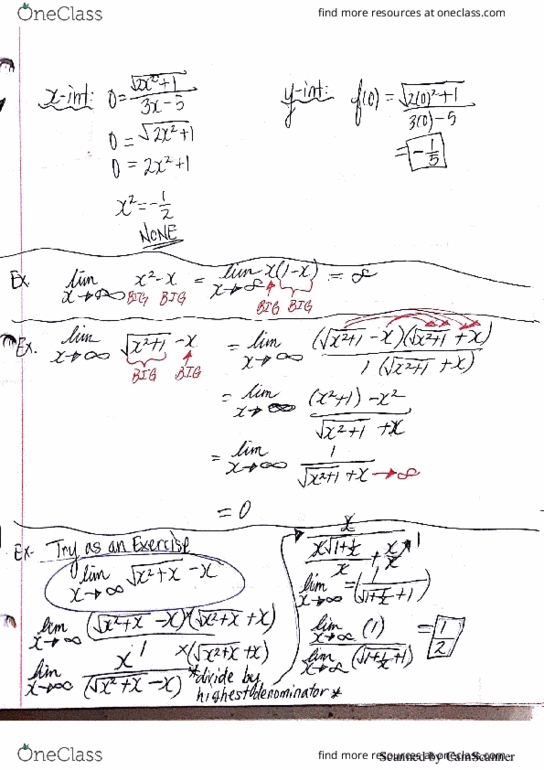 OneClass
find more resources at oneclass.com
x-int: 0 = √(2x²+1) / (3x-5)
0 = √(2x²+1)
0 = 2x²+1
x² = -1/2
NONE
y-int: f(0) = √(2(0)²+1) / (3(0)-5)
= -1/5
Ex. lim x→∞ x²-x = lim x→∞ x(1-x) = ∞
BIG BIG BIG BIG
Ex. lim x→∞ √(x²+1) - x = lim x→∞ (√(x²+1) - x)(√(x²+1) + x) / 1(√(x²+1) + x)
BIG BIG
= lim x→∞ (x²+1) - x² / (√(x²+1) + x)
= lim x→∞ 1 / (√(x²+1) + x) → ∞
= 0
Ex. Try as an Exercise
lim x→∞ √(x²+x) - x
lim x→∞ (√(x²+x) - x) × (√(x²+x) + x) / 1 × (√(x²+x) + x)
lim x→∞ x / (√(x²+x) - x)
*divide by
highest denominator*
x/x / (x√(1+1/x) / x + x/x) 1
lim x→∞ = (1 / (√(1+1/x) + 1))
lim x→∞ (1) / lim x→∞ (√(1+1/x) + 1) = 1/2
OneClass
find more resources at oneclass.com
Scanned by CamScanner